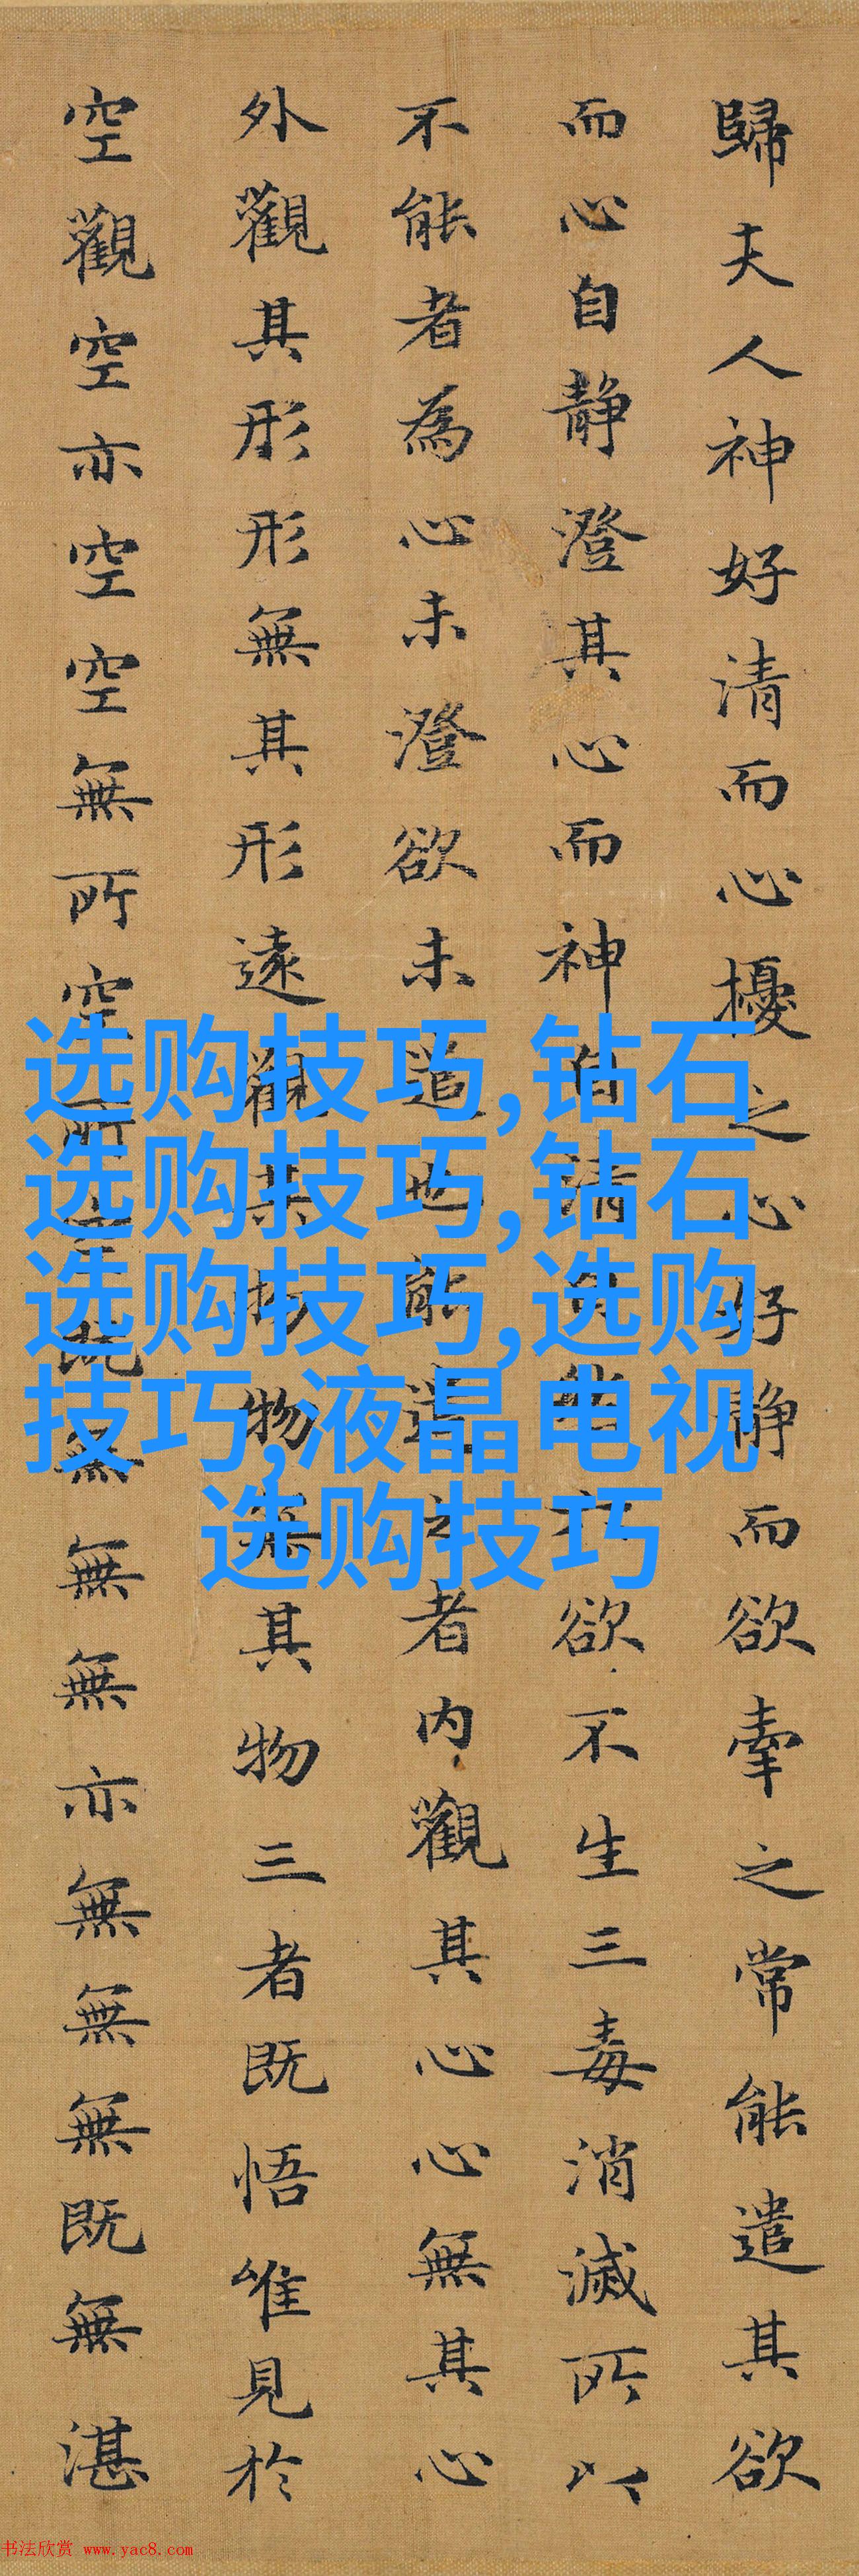 歸夫人神好清而心擾之心好静而欲牽之常能遣其欲
而心自静澄其心而神自清自然六欲不生三毒消滅所以
不能者為心未澄欲未遣也能遣之者内觀其心心無其心
外觀其形形無其形遠觀其物物無其物三者既悟唯見於
空觀空亦空空無所空所空既無無無亦無無無既無湛
选购技巧,钻石
选购技巧,钻石
选购技巧,选购
技巧,液晶电视
选购技巧
书法欣赏 www.yac8.com